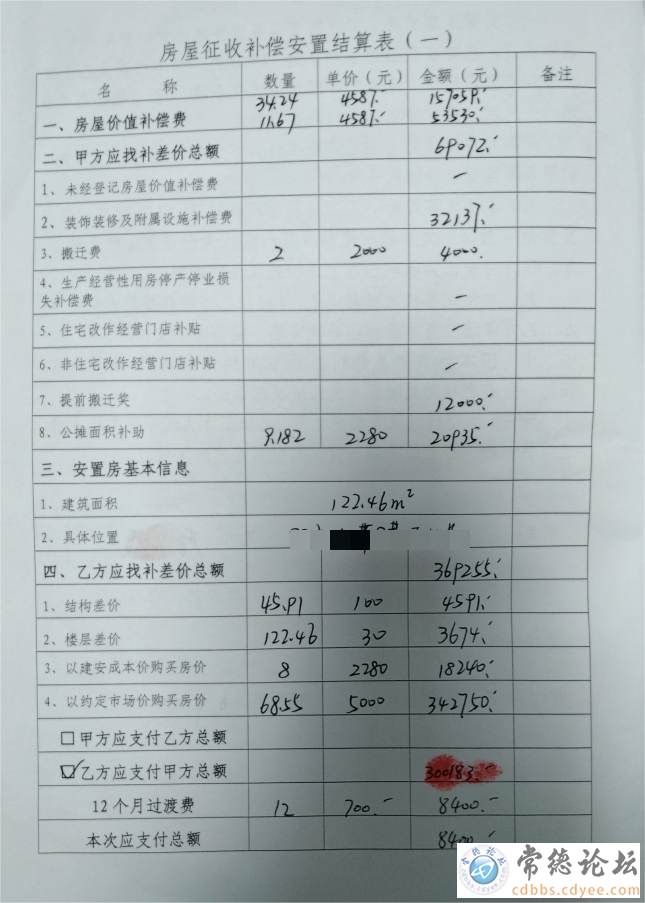 房屋征收补偿安置结算表（一）
名 称 数量 单价（元） 金额（元） 备注
一、房屋价值补偿费 34.24 4587.- 157059.-
11.67 4587.- 53530.-
二、甲方应找补差价总额 69072.-
1、未经登记房屋价值补偿费 —
2、装饰装修及附属设施补偿费 32137.-
3、搬迁费 2 2000 4000.
4、生产经营性用房停产停业损
失补偿费 —
5、住宅改作经营门店补贴 —
6、非住宅改作经营门店补贴 —
7、提前搬迁奖 12000.-
8、公摊面积补助 9.182 2280 20935.-
三、安置房基本信息
1、建筑面积 122.46m²
2、具体位置
四、乙方应找补差价总额 369255.-
1、结构差价 45.91 100 4591.-
2、楼层差价 122.46 30 3674.-
3、以建安成本价购买房价 8 2280 18240.-
4、以约定市场价购买房价 68.55 5000 342750.-
☐甲方应支付乙方总额
☑乙方应支付甲方总额 300183.-
12个月过渡费 12 700.- 8400.-
本次应支付总额 8400.-
常德论坛
cdbbs.cdyee.com